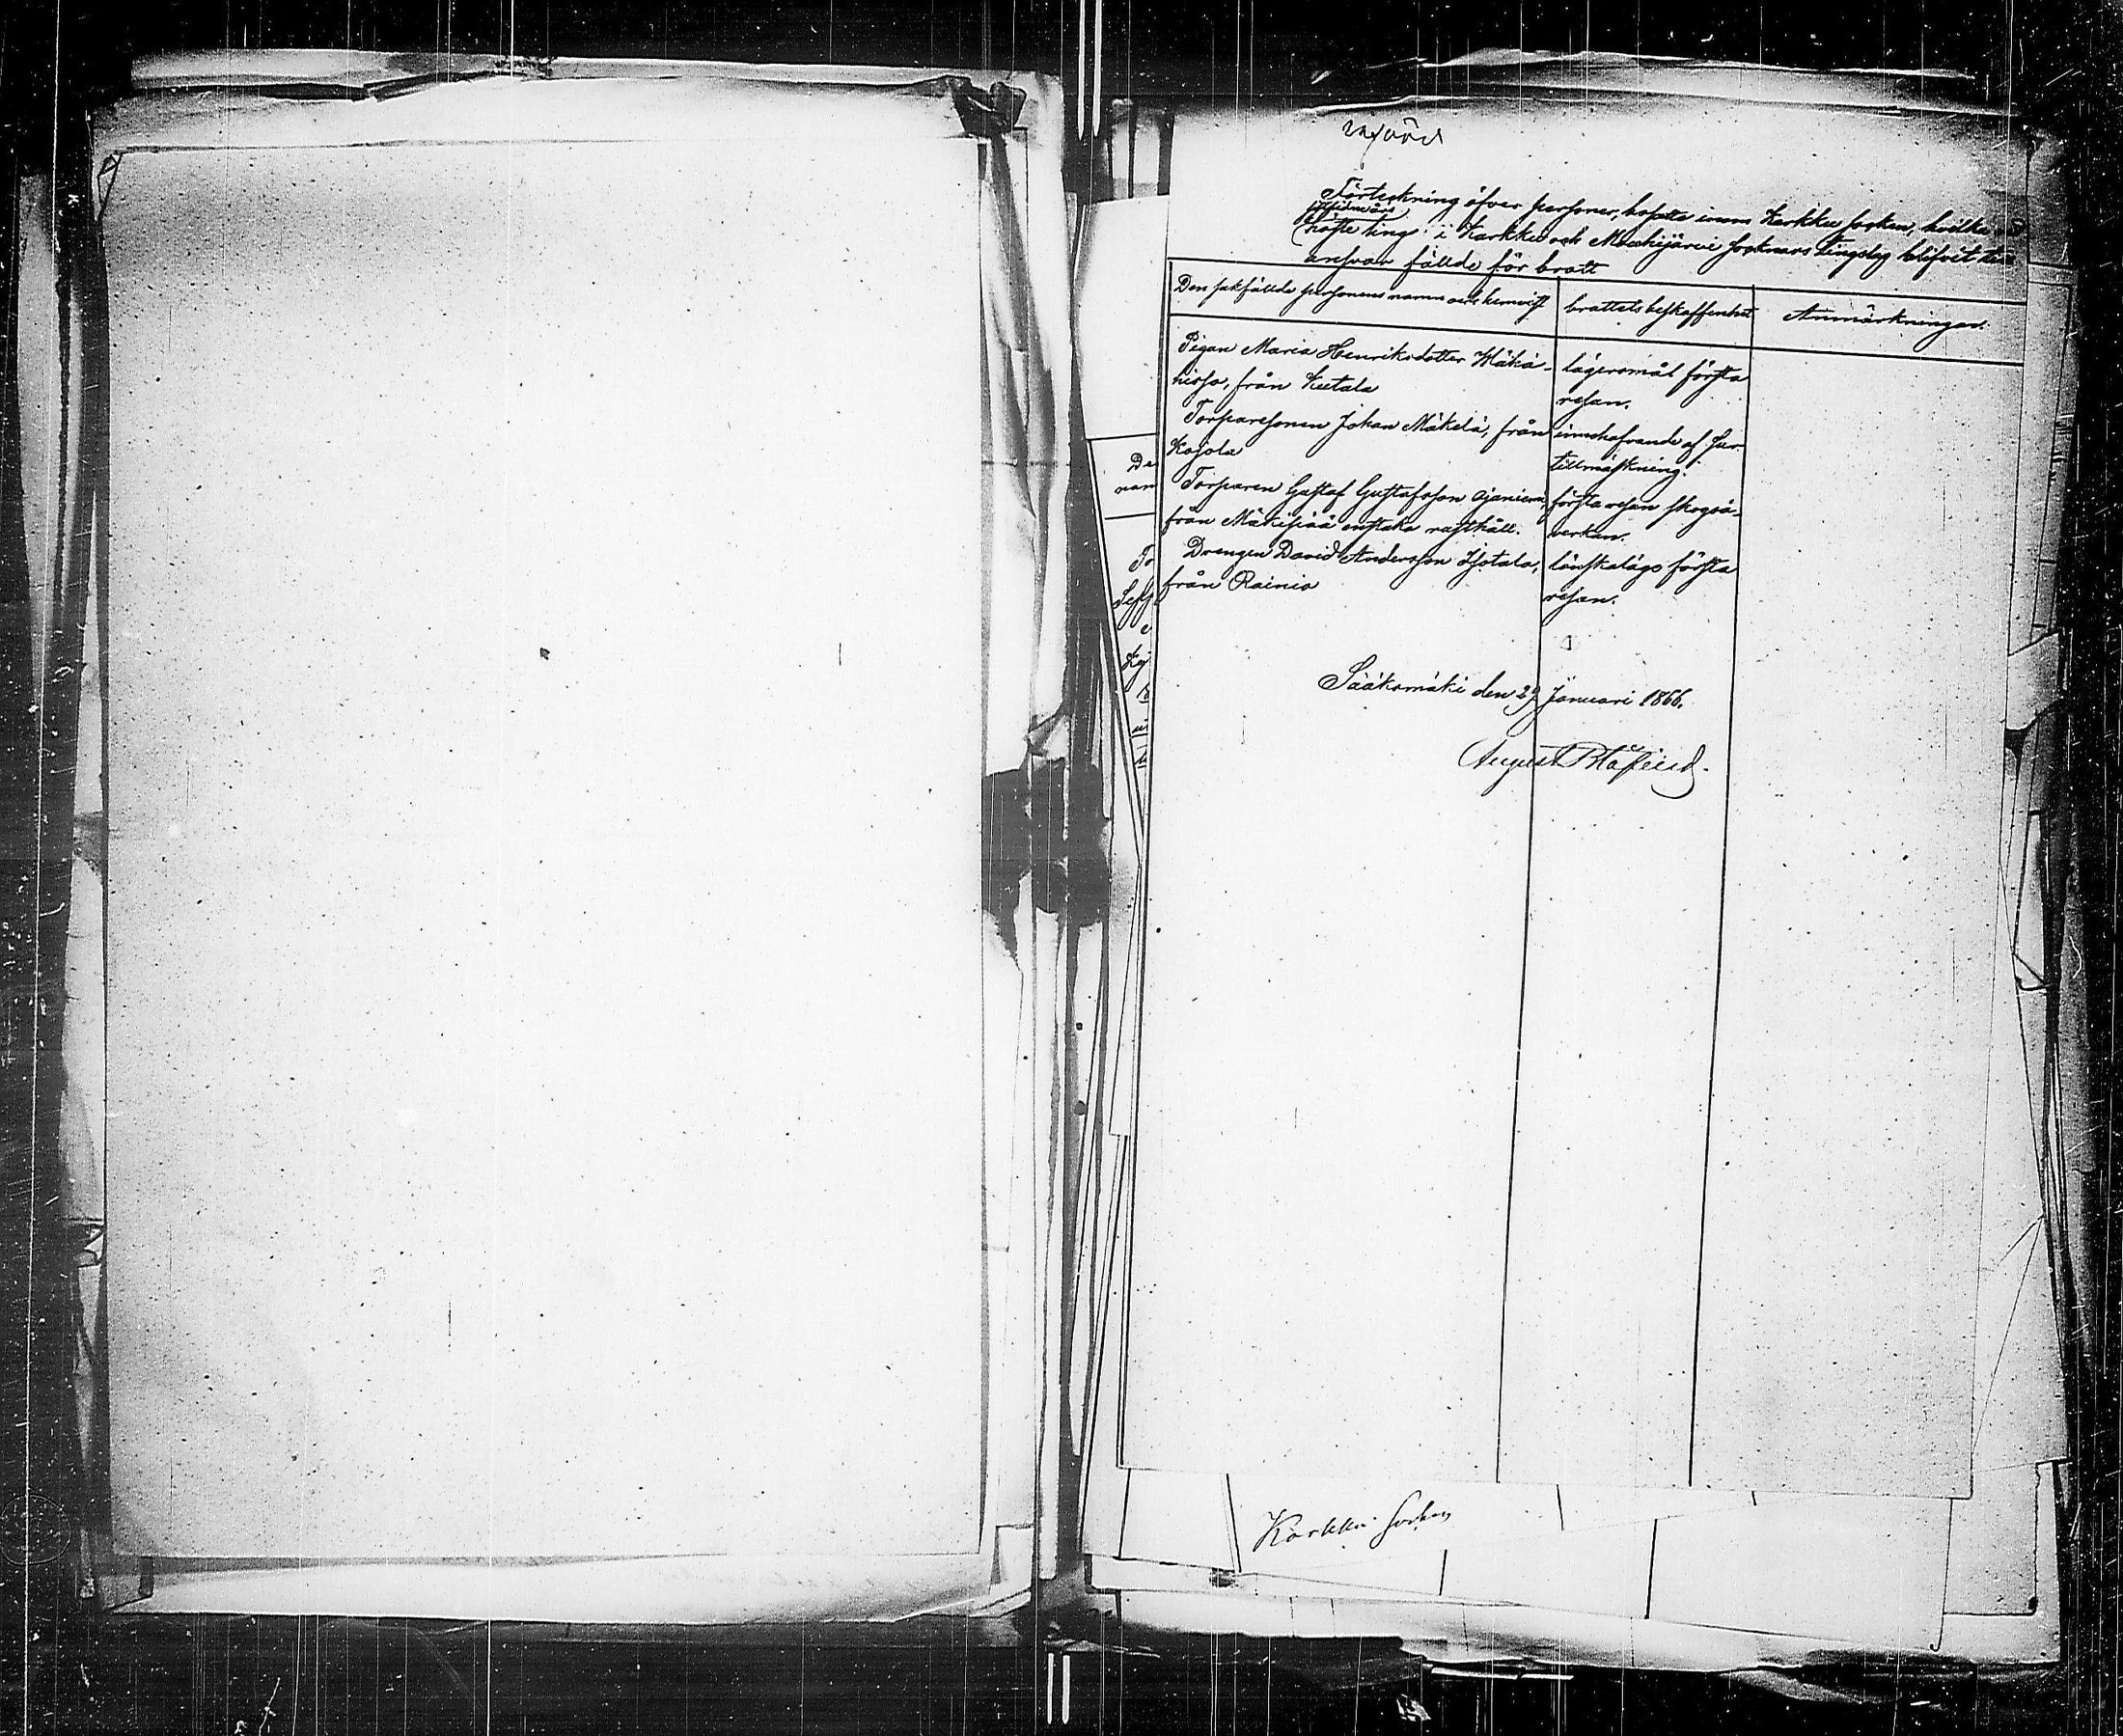 införd
Förteckning öfver personer, bosatte inom Karkku socken, hvilka vid
sistlidne års
höste ting i Karkku och Mouhijärvi socknars Tingslag blifvit till
ansvar fällde för brott
Den sakfällde personens namn och hemvist
brottets beskaffenhet
Anmärkningar.
Pigan Maria Henriksdotter Mäkä-
hissa, från Kutala
lägersmål första
resan.
Torparesonen Johan Mäkelä, från
Kojola
innehafvande af
tillmäskning.
Torparen Gustaf Gustafsson Ojaniemi,
från Mäkipää enstaka rusthåll.
första resan skogså-
verkan.
Drengen David Andersson Isotalo,
från Rainio
lönskaläge första
resan.
Sääksmäki den 29 Januari 1866.
August Blåfield.
De
nam
To
Karkku socken